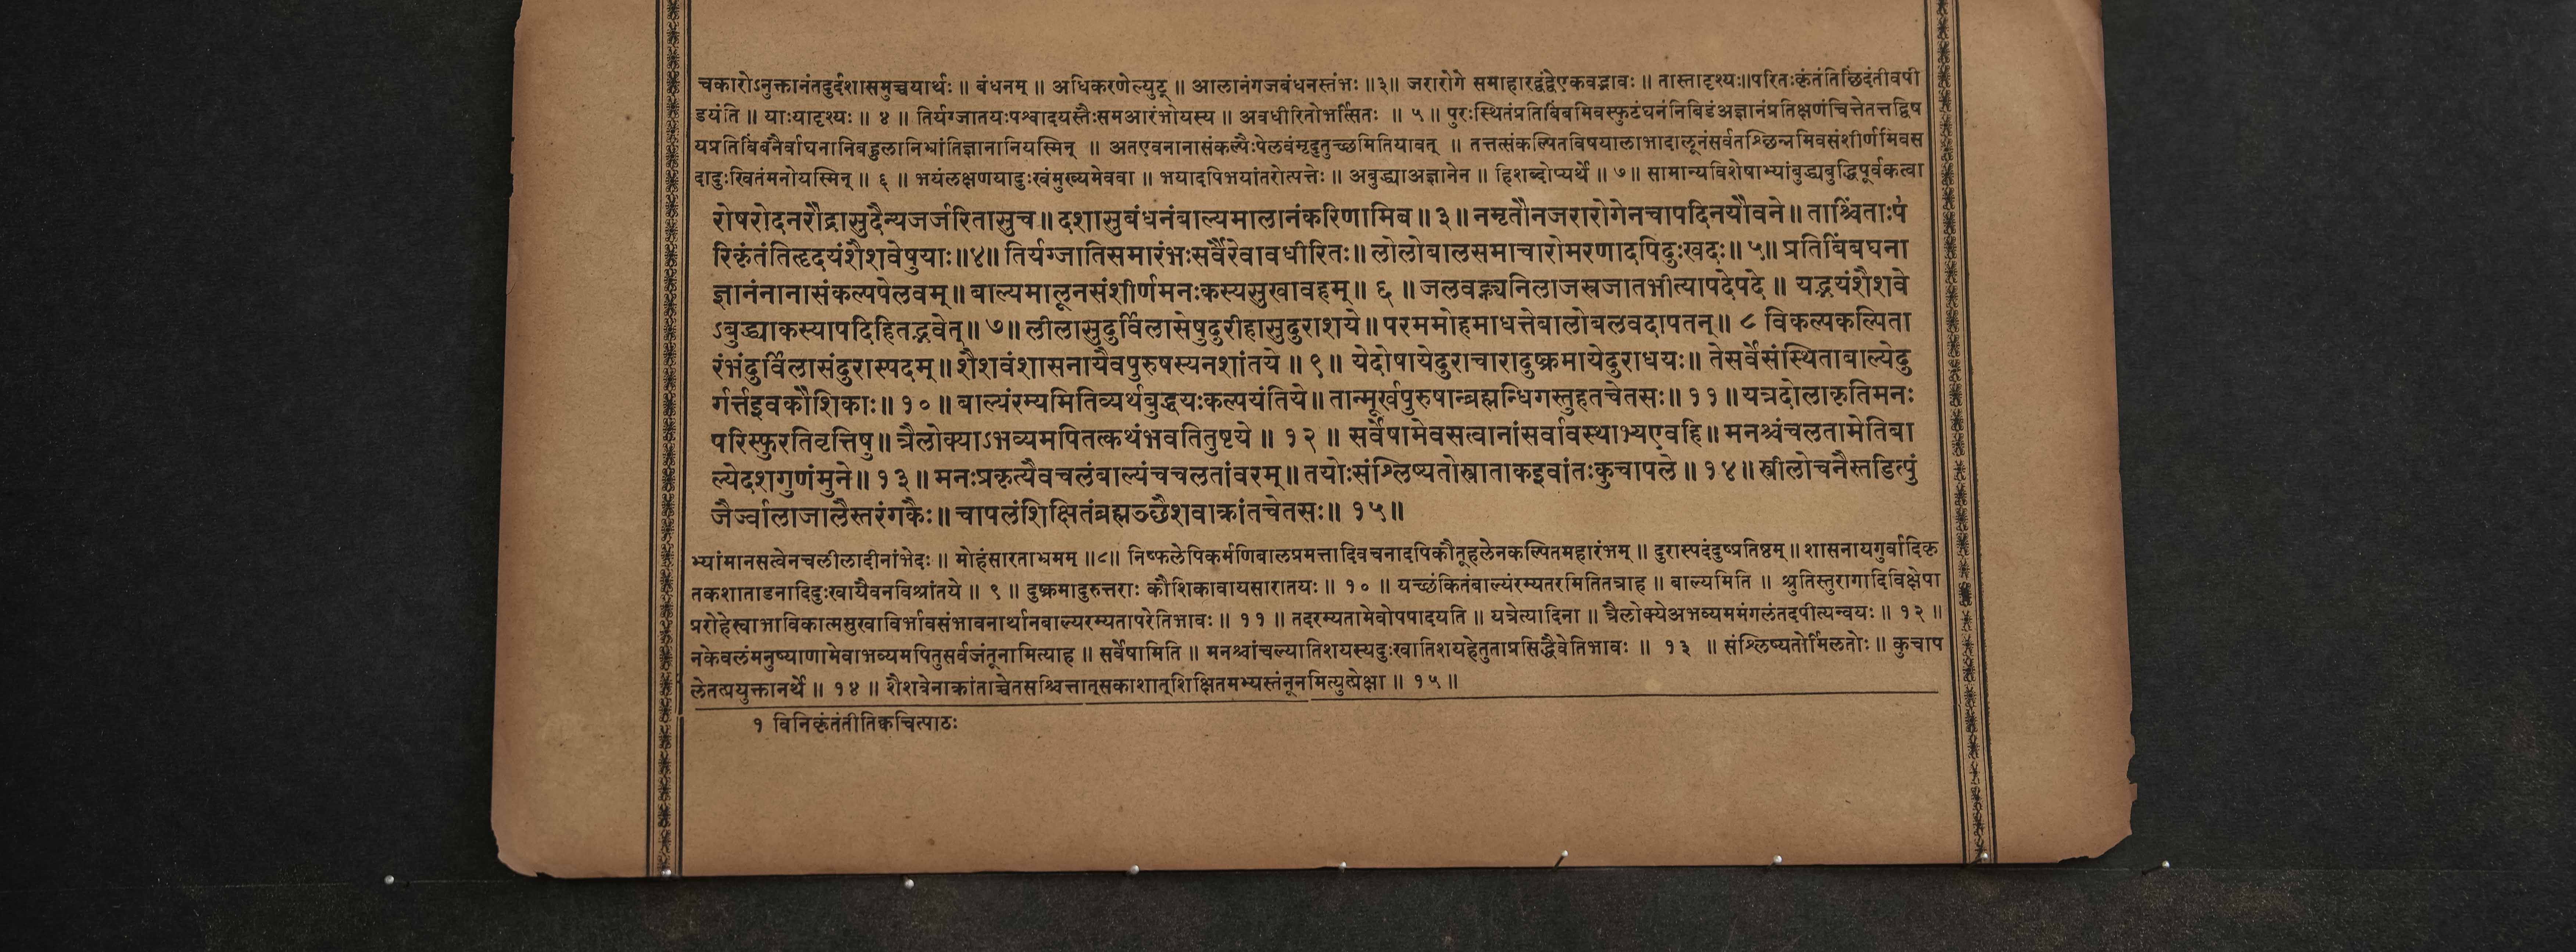 चकारोऽनुक्तानंतदुर्दशासमुच्चयार्थः ॥ बंधनम् ॥ अधिकरणेल्युट् ॥ आलानंगजबंधनस्तंभः ॥३॥ जरारोगे समाहारद्वंद्वेएकवद्भावः ॥ तास्तादृश्यः॥परितःकृंतंतिछिंदंतीवपी
डयंति ॥ याःयादृश्यः ॥ ४ ॥ तिर्यग्जातयःपश्वादयस्तैःसमआरंभोयस्य ॥ अवधीरितोभर्त्सितः ॥ ५ ॥ पुरःस्थितंप्रतिबिंबमिवस्फुटंघनंनिबिडंअज्ञानंप्रतिक्षणंचित्तेतत्तद्विष
यप्रतिबिंबनैर्वाघनानिबहुलानिभ्रांतिज्ञानानियस्मिन् ॥ अतएवनानासंकल्पैःपेलवंमृदुतुच्छमितियावत् ॥ तत्तत्संकल्पितविषयालाभादालूनंसर्वतश्छिन्नमिवसंशीर्णमिवस
दादुःखितंमनोयस्मिन् ॥ ६ ॥ भयंलक्षणयादुःखंमुख्यमेववा ॥ भयादपिभयांतरोत्पत्तेः ॥ अबुद्ध्याअज्ञानेन ॥ हिशब्दोप्यर्थे ॥ ७॥ सामान्यविशेषाभ्यांबुद्ध्यबुद्धिपूर्वकत्वा
रोषरोदनरौद्रासुदैन्यजर्जरितासुच॥ दशासुबंधनंबाल्यमालानंकरिणामिव॥ ३॥ नमृतौनजरारोगेनचापदिनयौवने॥ ताश्चिंताःप१
रिकृंतंतिहृदयंशैशवेषुयाः॥४॥ तिर्यग्जातिसमारंभःसर्वैरेवावधीरितः॥ लोलोबालसमाचारोमरणादपिदुःखदः॥ ५॥ प्रतिबिंबघना
ज्ञानंनानासंकल्पपेलवम्॥ बाल्यमालूनसंशीर्णमनःकस्यसुखावहम्॥ ६ ॥ जलवह्न्यनिलाजस्रजातभीत्यापदेपदे ॥ यद्भयंशैशवे
ऽबुद्ध्याकस्यापदिहितद्भवेत्॥ ७॥ लीलासुदुर्विलासेषुदुरीहासुदुराशये॥ परममोहमाधत्तेबालोबलवदापतन्॥ ८ विकल्पकल्पिता
रंभंदुर्विलासंदुरास्पदम्॥ शैशवंशासनायैवपुरुषस्यनशांतये ॥ ९॥ येदोषायेदुराचारादुष्क्रमायेदुराधयः॥ तेसर्वेसंस्थिताबाल्येदु
र्गर्त्तइवकौशिकाः॥ १०॥ बाल्यंरम्यमितिव्यर्थबुद्धयःकल्पयंतिये॥ तान्मूर्खपुरुषान्ब्रह्मन्धिगस्तुहतचेतसः॥ ११॥ यत्रदोलाकृतिमनः
परिस्फुरतिवृत्तिषु॥ त्रैलोक्याऽभव्यमपितत्कथंभवतितुष्टये ॥ १२ ॥ सर्वेषामेवसत्वानांसर्वावस्थाभ्यएवहि॥ मनश्चंचलतामेतिबा
ल्येदशगुणंमुने॥ १३॥ मनःप्रकृत्यैवचलंबाल्यंचचलतांवरम्॥ तयोःसंश्लिष्यतोस्त्राताकइवांतःकुचापले॥ १४॥ स्त्रीलोचनैस्तडित्पुं
जैर्ज्वालाजालैस्तरंगकैः॥ चापलंशिक्षितंब्रह्मञ्छैशवाक्रांतचेतसः॥ १५॥
भ्यांमानसत्वेनचलीलादीनांभेदः ॥ मोहंसारताभ्रमम् ॥८॥ निष्फलेपिकर्मणिबालप्रमत्तादिवचनादपिकौतूहलेनकल्पितमहारंभम्॥ दुरास्पदंदुष्प्रतिष्ठम्॥ शासनायगुर्वादिकृ
तकशाताडनादिदुःखायैवनविश्रांतये ॥ ९ ॥ दुष्क्रमादुरुत्तराः कौशिकावायसारातयः ॥ १० ॥ यच्छंकितंबाल्यंरम्यतरमितितत्राह ॥ बाल्यमिति ॥ श्रुतिस्तुरागादिविक्षेपा
प्ररोहेस्वाभाविकात्मसुखाविर्भावसंभावनार्थानबाल्यरम्यतापरेतिभावः ॥ ११ ॥ तदरम्यतामेवोपपादयति ॥ यत्रेत्यादिना ॥ त्रैलोक्येअभव्यममंगलंतदपीत्यन्वयः ॥ १२ ॥
नकेवलंमनुष्याणामेवाभव्यमपितुसर्वजंतूनामित्याह ॥ सर्वेषामिति ॥ मनश्चांचल्यातिशयस्यदुःखातिशयहेतुताप्रसिद्धैवेतिभावः ॥ १३ ॥ संश्लिष्यतोर्मिलतोः ॥ कुचाप
लेतत्प्रयुक्तानर्थे ॥ १४ ॥ शैशवेनाक्रांताच्चेतसश्चित्तात्सकाशात्शिक्षितमभ्यस्तंनूनमित्युत्प्रेक्षा ॥ १५ ॥
१ विनिकृंतंतीतिक्वचित्पाठः